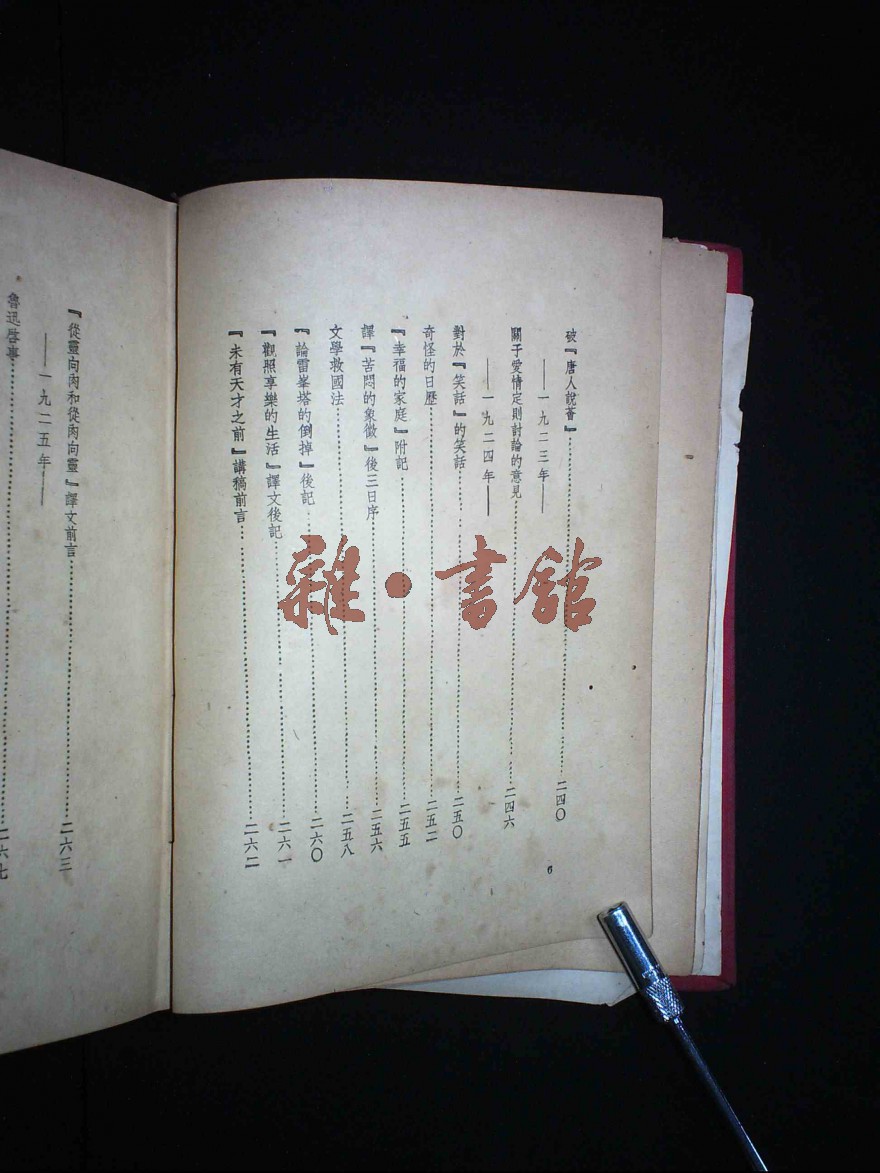 破『唐人說薈』……二四〇
——一九二三年——
關于愛情定則討論的意見……二四六
——一九二四年——
對於『笑話』的笑話……二五〇
奇怪的日歷……二五二
『幸福的家庭』附記……二五五
譯『苦悶的象徵』後三日序……二五六
文學救國法……二五八
『論雷峯塔的倒掉』後記……二六〇
『觀照享樂的生活』譯文後記……二六一
『未有天才之前』講稿前言……二六二
6
『從靈向肉和從肉向靈』譯文前言……二六三
——一九二五年——
魯迅啓事……二六七
雜·書館